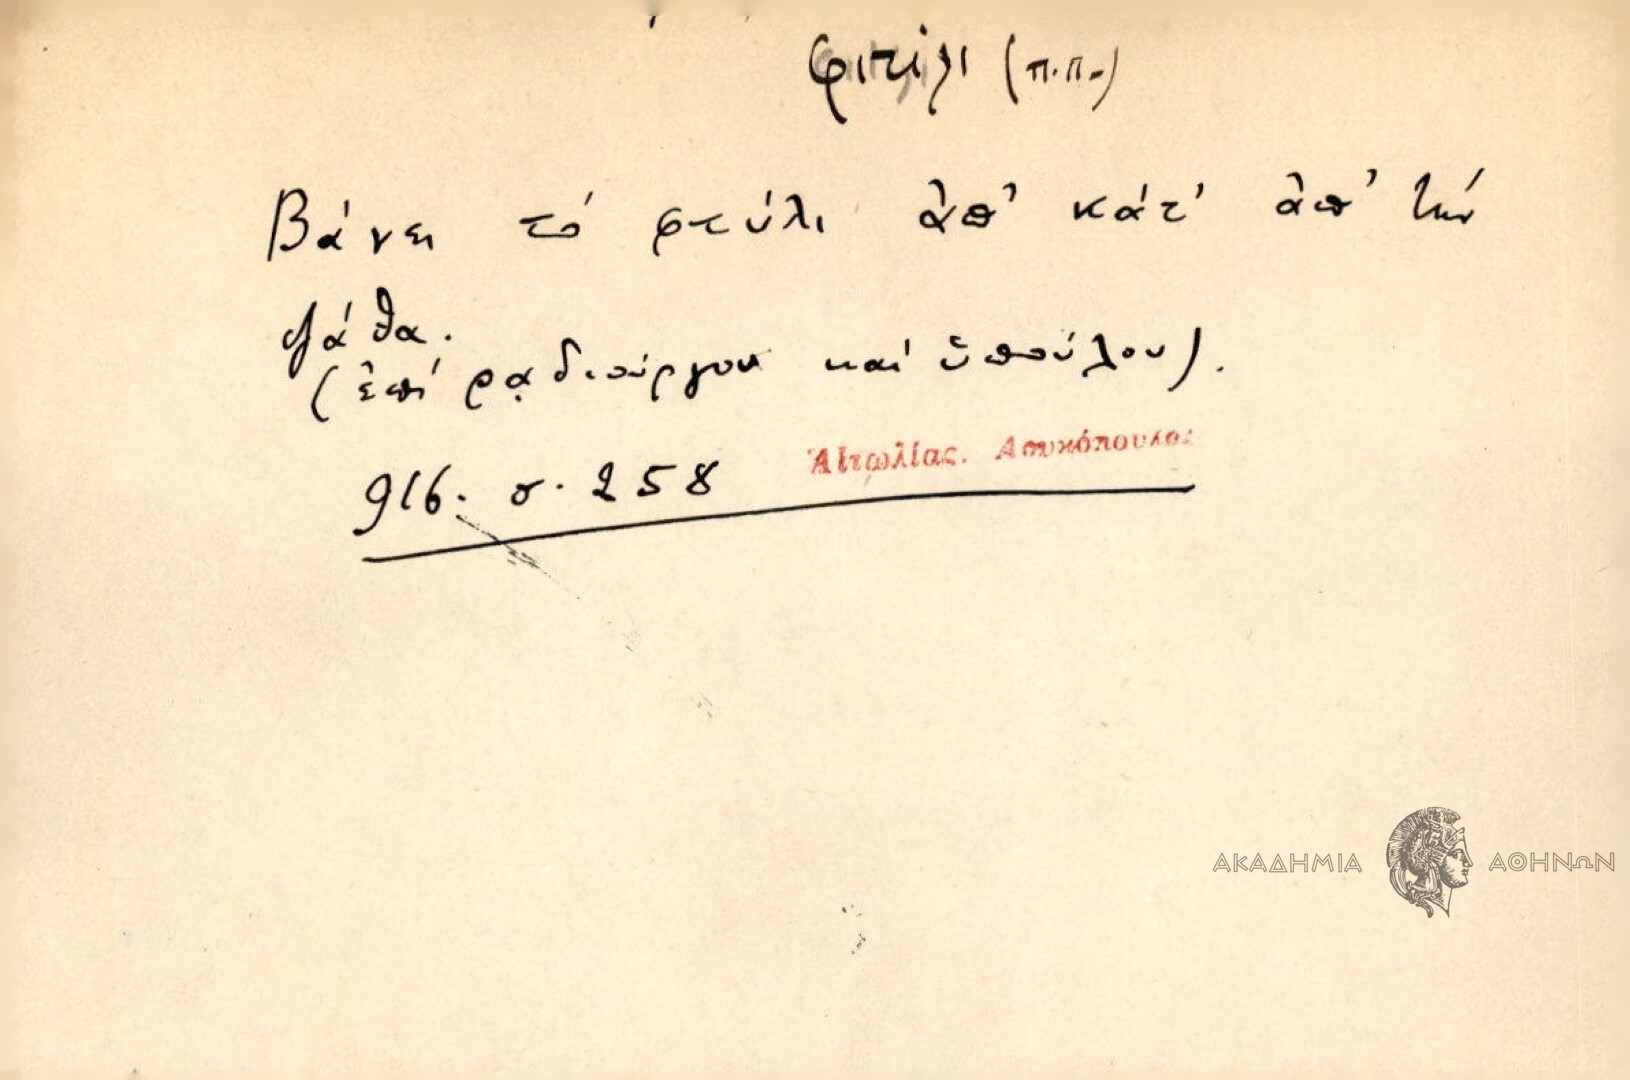 φιτίλι (π.π.)
Βάνει τό φτύλι ἀπ' κάτ' ἀπ' τήν
ψάθα.
(ἐπί ρᾳδιούργου καί ὑπούλου).
916. σ. 258 Αἰτωλίας. Λουκόπουλος
ΑΚΑΔΗΜΙΑ ΑΘΗΝΩΝ